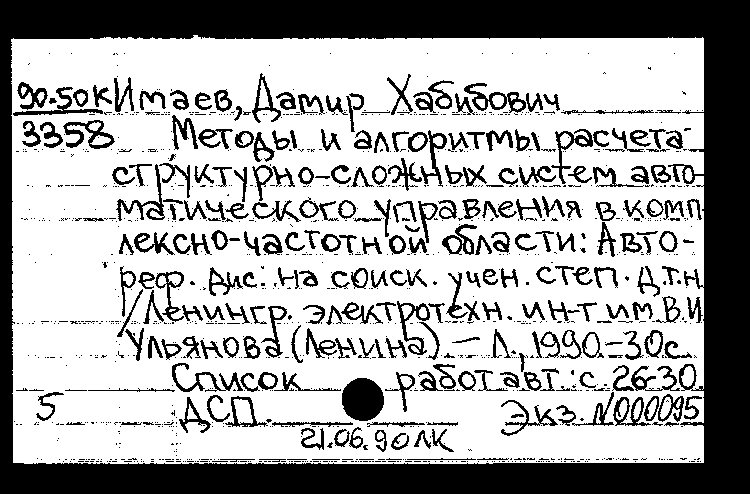 90-50к Имаев, Дамир Хабибович
3358 Методы и алгоритмы расчета
структурно-сложных систем авто-
матического управления в комп
лексно-частотной области: Авто-
реф. дис. на соиск. учен. степ. д.т.н
/Ленингр. электротехн. ин-т им В.И
Ульянова (Ленина). – Л., 1990.-30с.
Список работ авт.: с. 26-30.
5 ДСП. Экз. N000095
21.06.90 ЛК